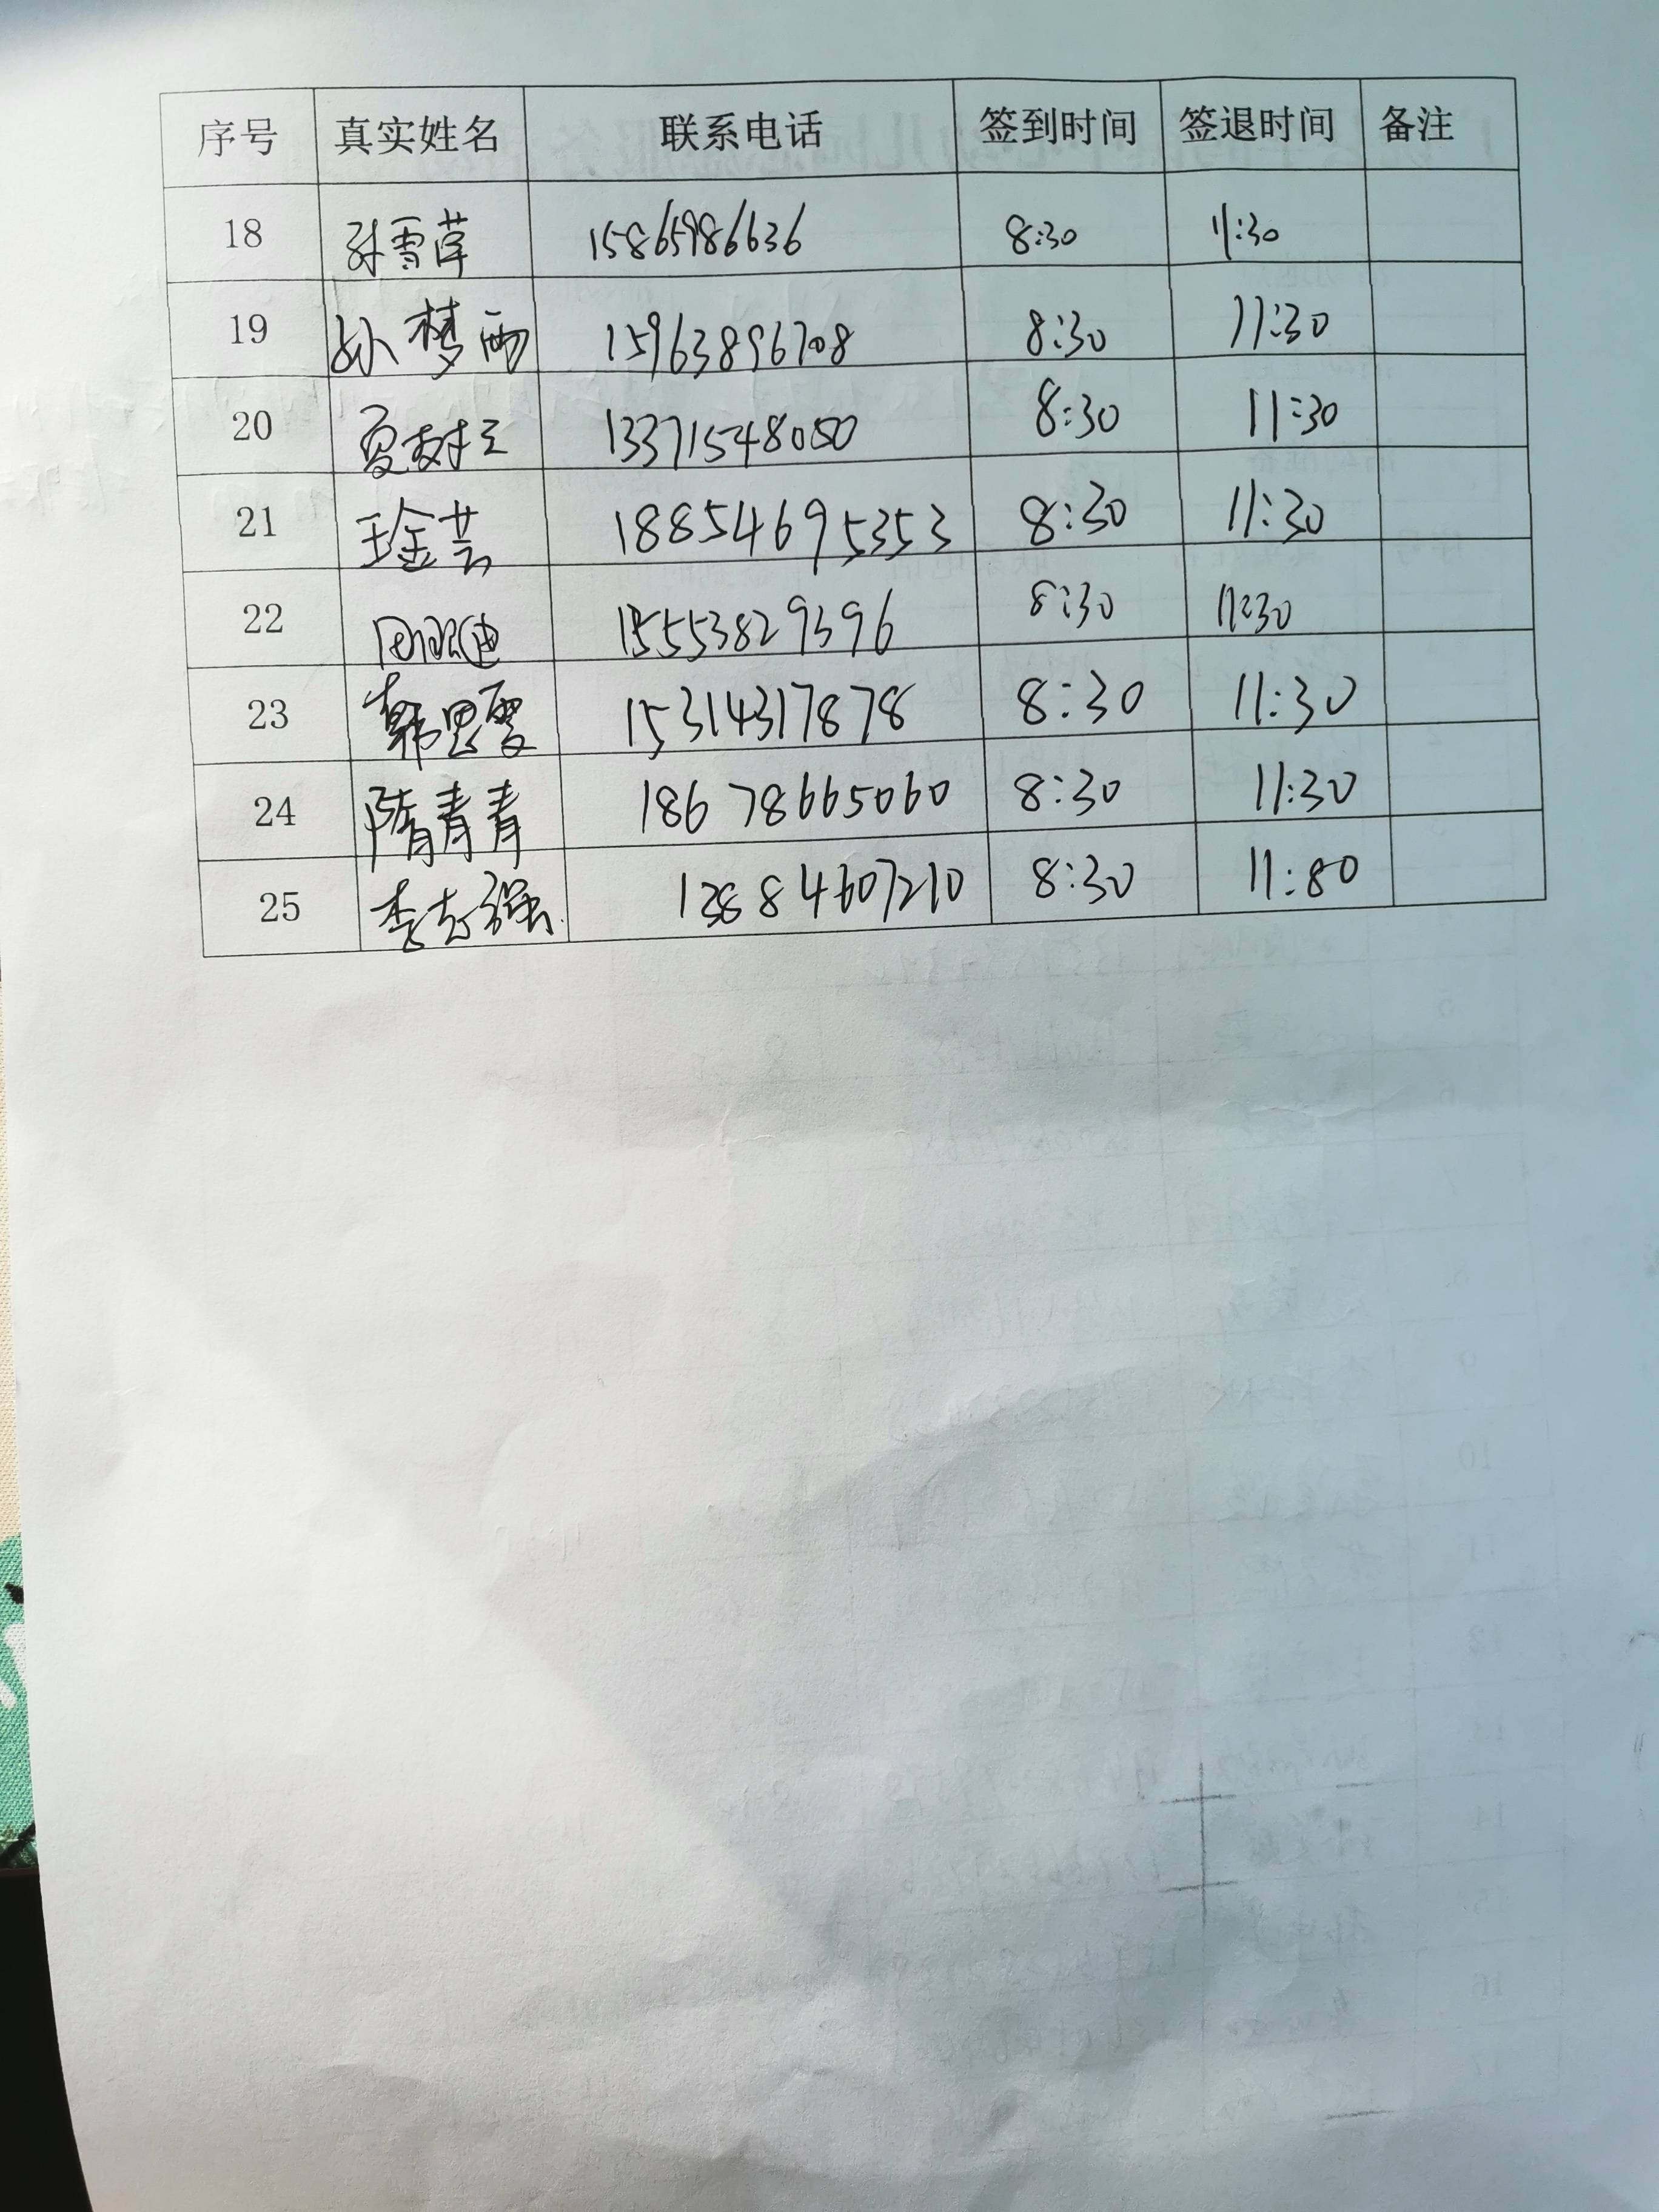 序号 真实姓名 联系电话 签到时间 签退时间 备注
18 孙雪萍 15865986636 8:30 11:30
19 孙梦雨 15963896708 8:30 11:30
20 13371548080 8:30 11:30
21 王金芸 18854695353 8:30 11:30
22 15553829396 8:30 11:30
23 韩思雯 15314317878 8:30 11:30
24 隋青青 18678665060 8:30 11:30
25 李志强 13884607210 8:30 11:80